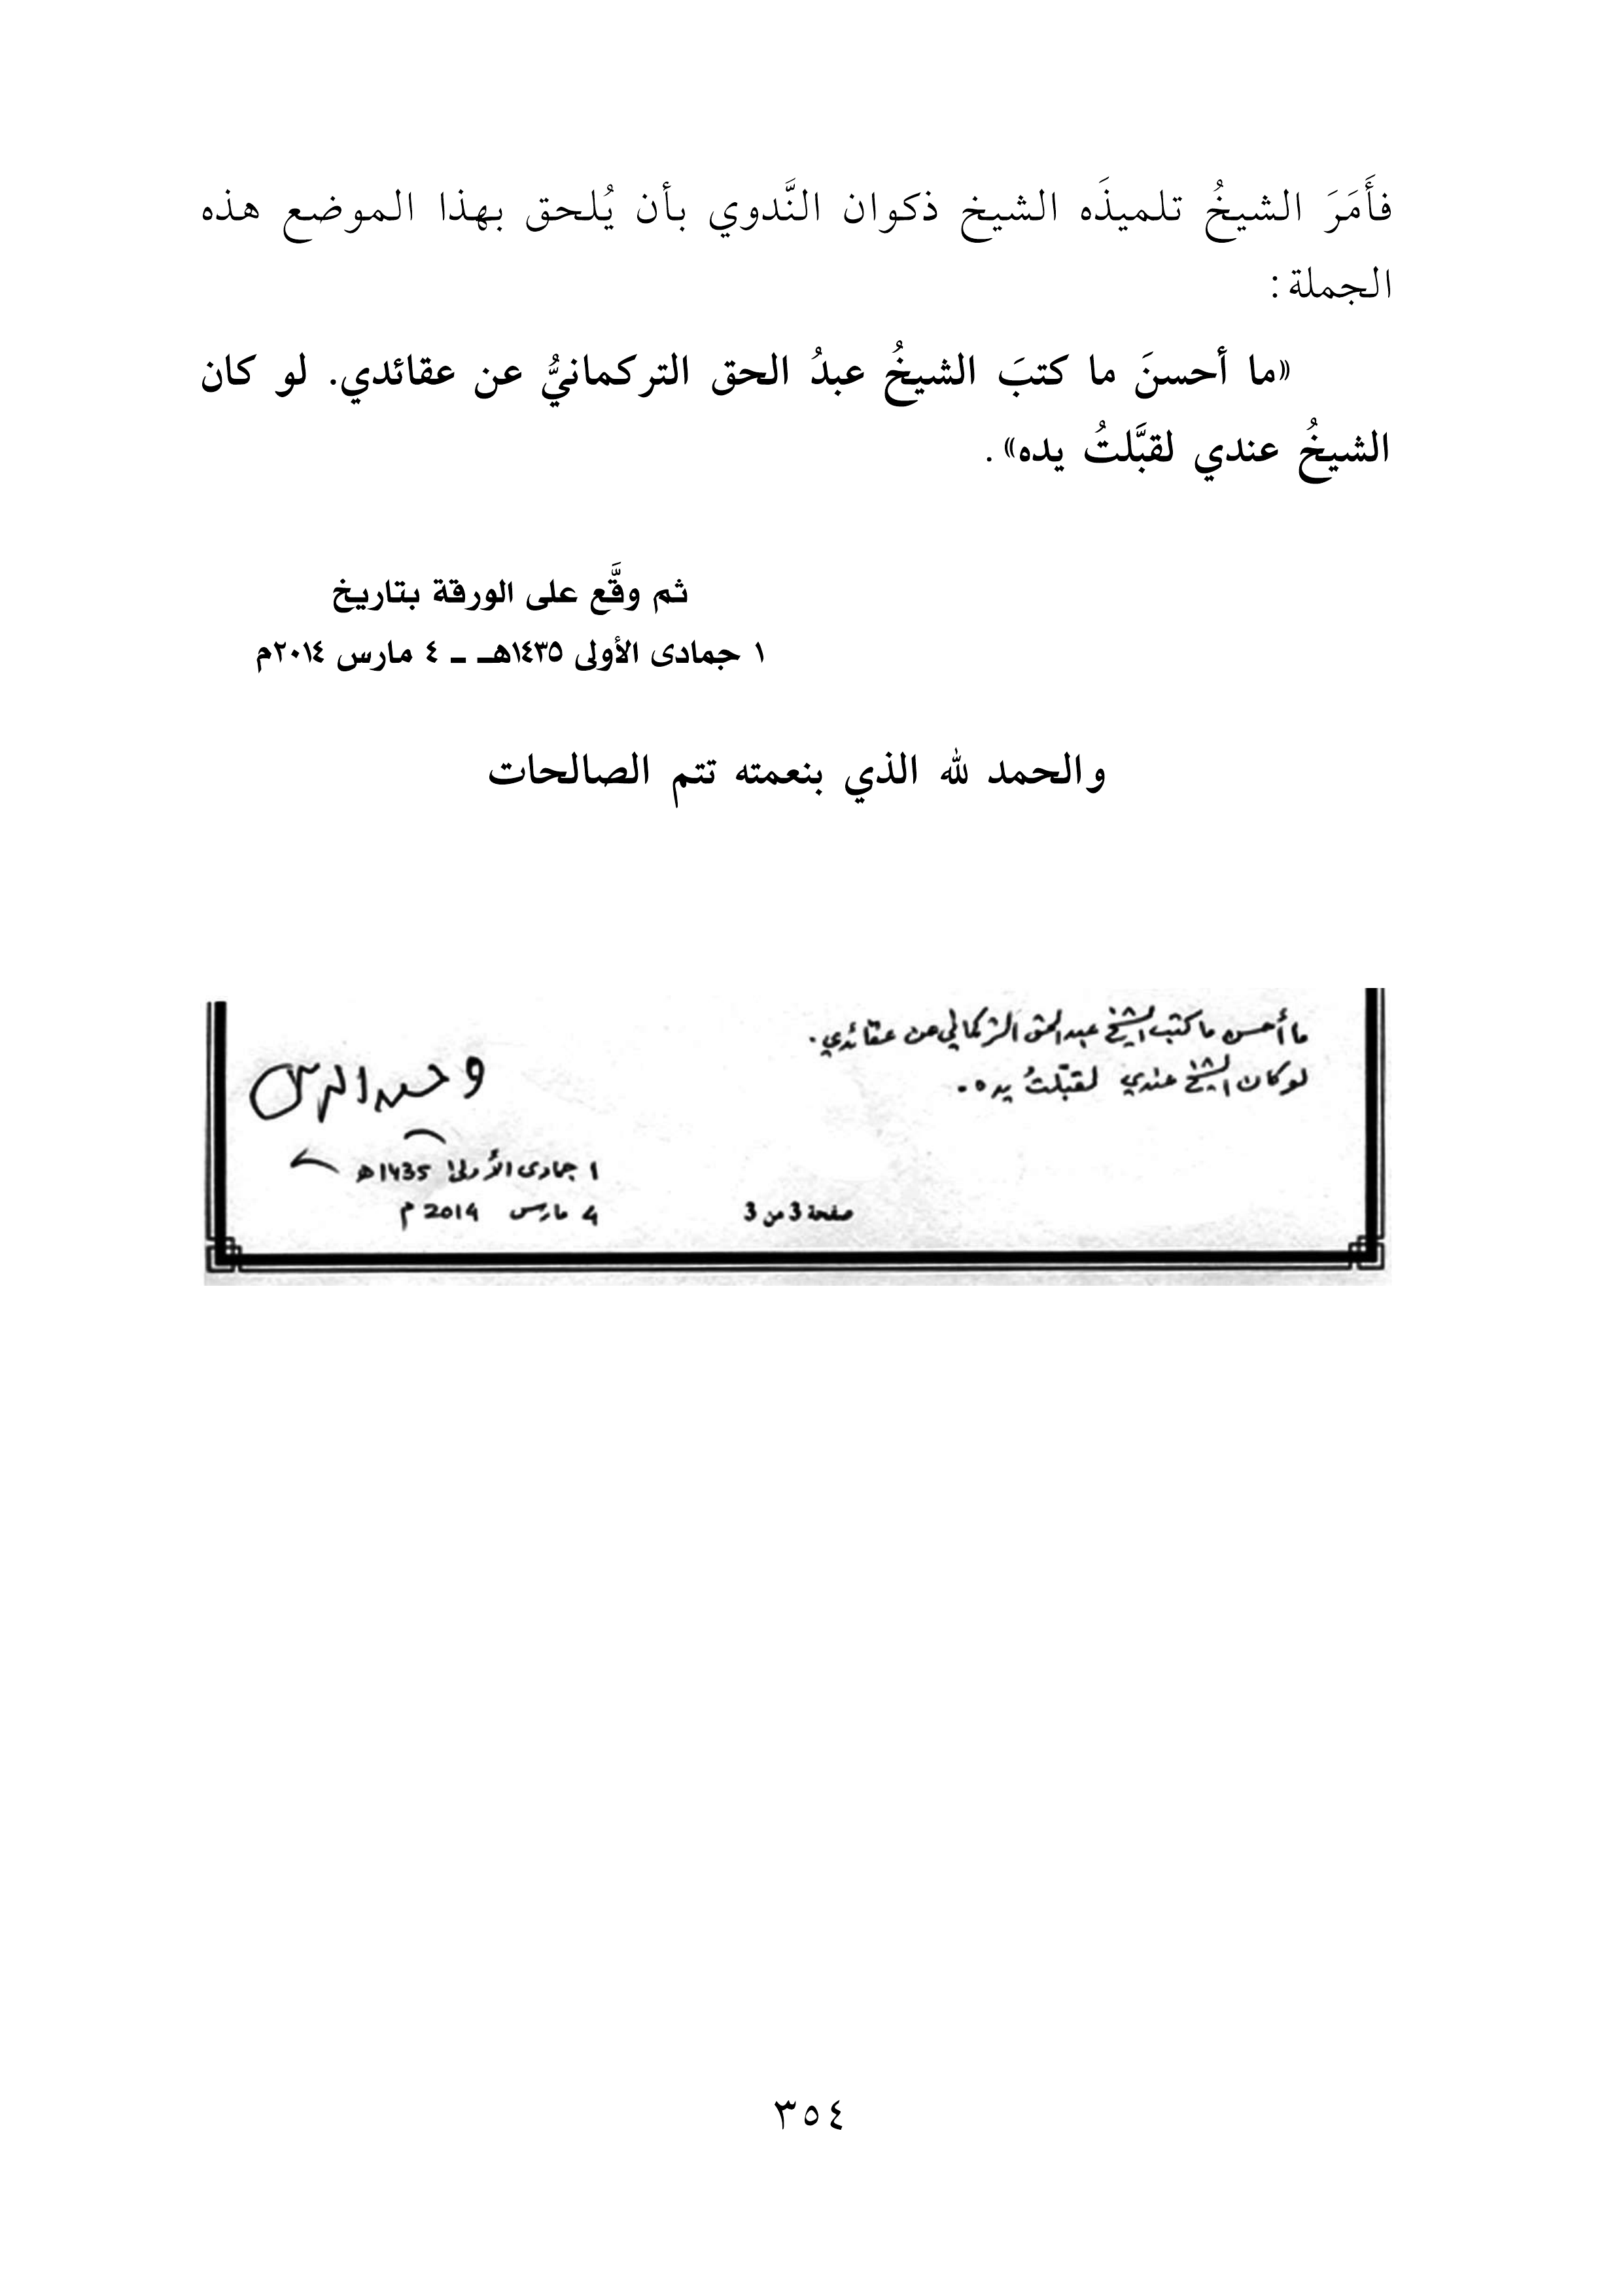 فأَمَرَ الشيخُ تلميذَه الشيخ ذكوان النَّدوي بأن يُلحق بهذا الموضع هذه
الجملة:
«ما أحسنَ ما كتبَ الشيخُ عبدُ الحق التركمانيُّ عن عقائدي. لو كان
الشيخُ عندي لقبَّلتُ يده».
ثم وقَّع على الورقة بتاريخ
١ جمادى الأولى ١٤٣٥هـ ـ ٤ مارس ٢٠١٤م
والحمد لله الذي بنعمته تتم الصالحات
ما أحسن ما كتب الشيخ عبد الحق التركماني عن عقائدي.
لو كان الشيخ عندي لقبّلتُ يده.
وحيد الدين
1 جمادى الأولى 1435هـ
4 مارس 2014 م
صفحة 3 من 3
٣٥٤